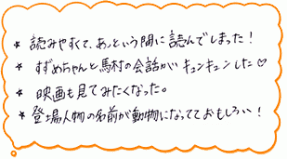 ★ 読みやすくて、あっという間に読んでしまった！
★ すずめちゃんと馬村の会話がキュンキュンした♡
★ 映画も見てみたくなった。
★ 登場人物の名前が動物になっててておもしろい！